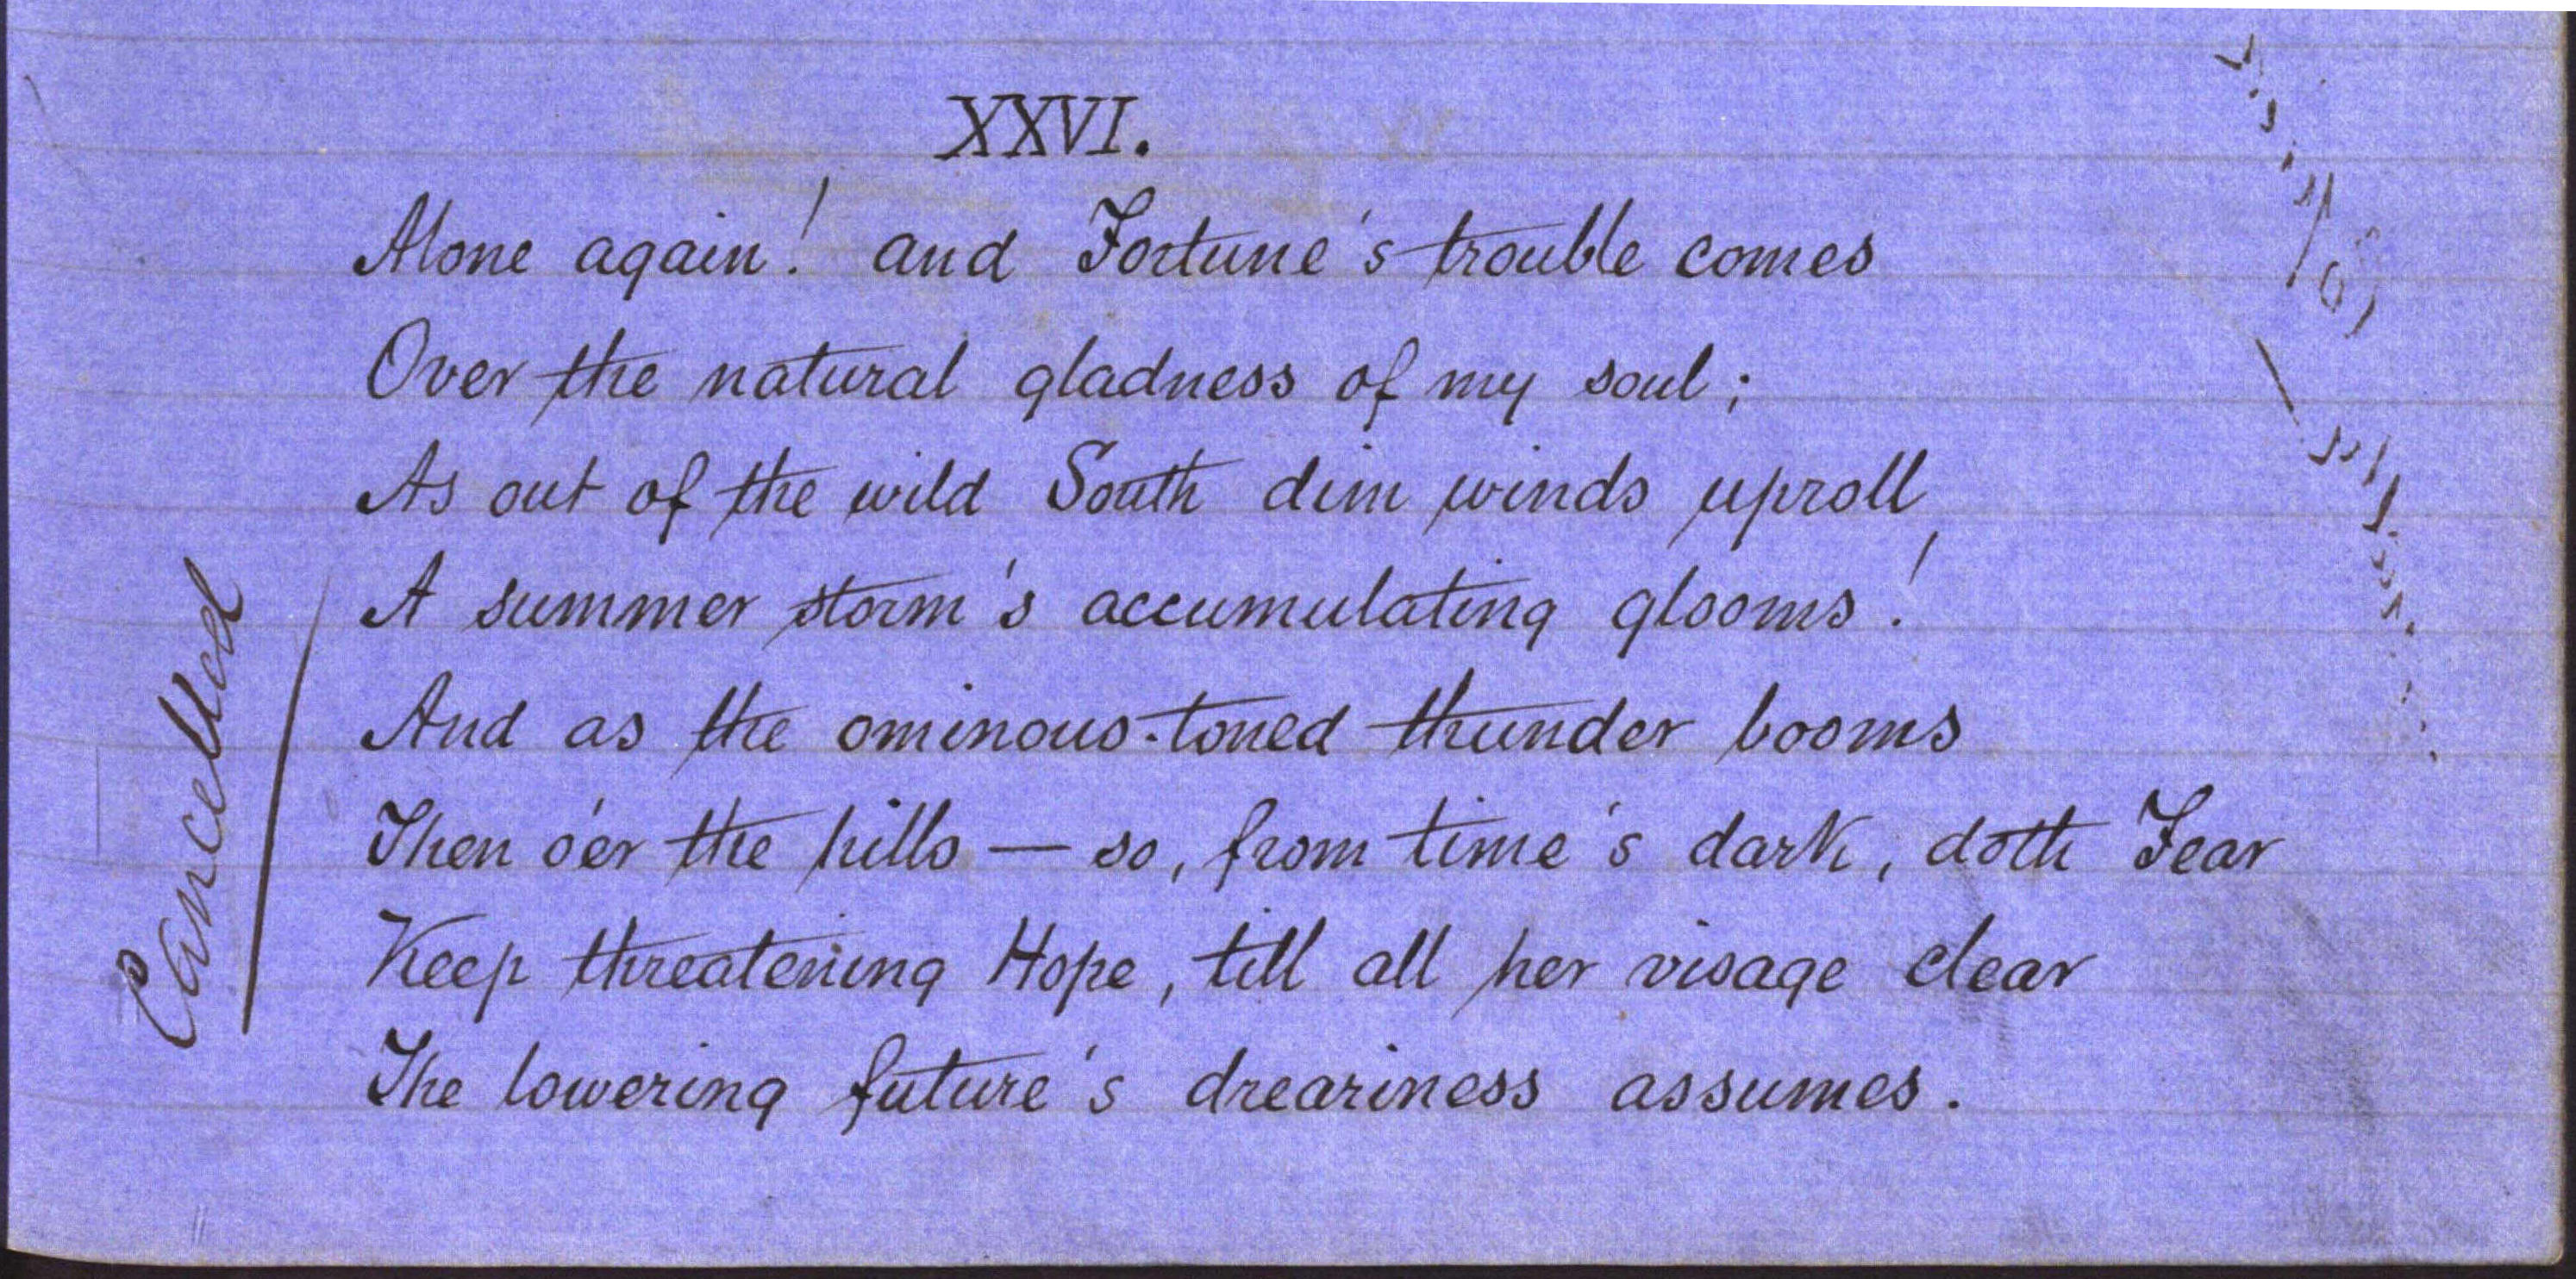 XXVI.
Alone again! and Fortune's trouble comes
Over the natural gladness of my soul;
As out of the wild South dim winds uproll
A summer storm's accumulating glooms!
And as the ominous-toned thunder booms
Then o'er the hills — so, from time's dark, doth Fear
Keep threatening Hope, till all her visage clear
The lowering future's dreariness assumes.
Cancelled